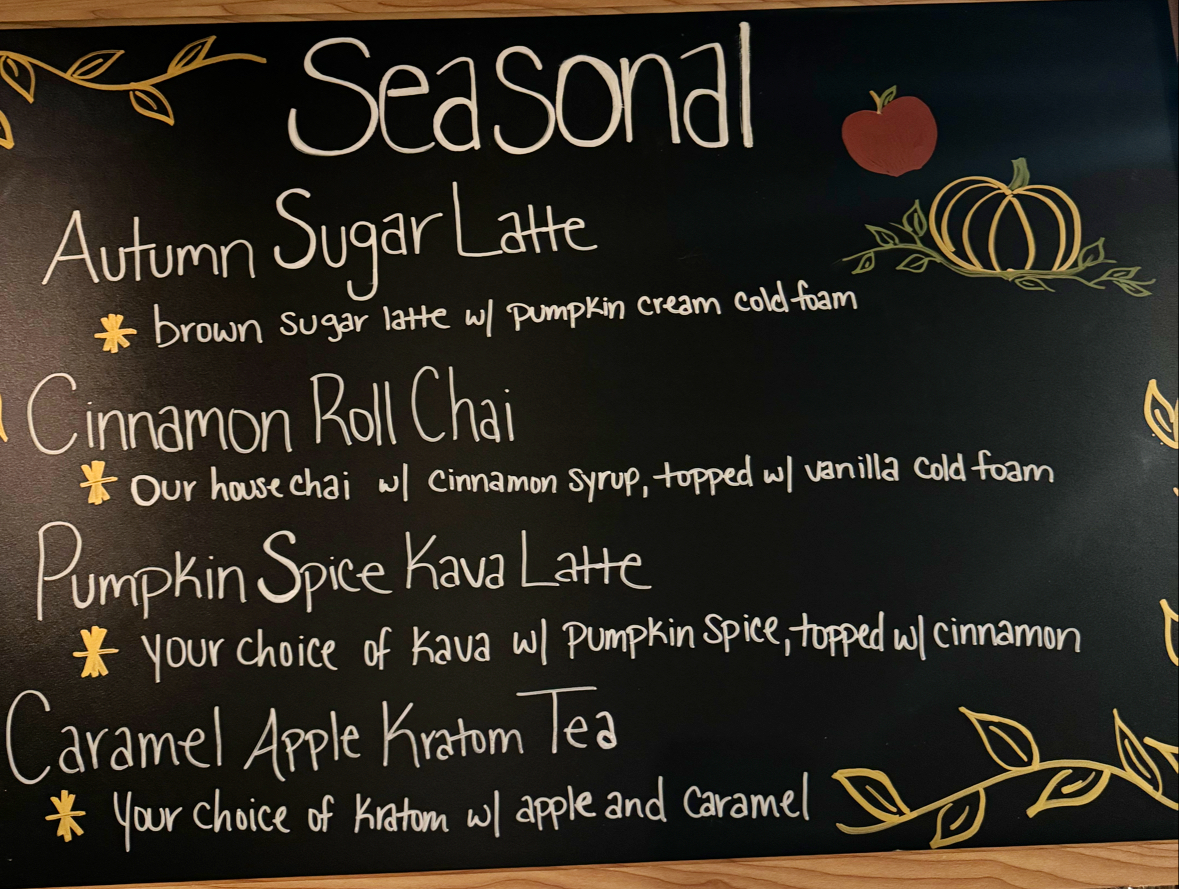 Seasonal
Autumn Sugar Latte
brown sugar latte w/ pumpkin cream cold foam
Cinnamon Roll Chai
Our house chai w/ cinnamon syrup, topped w/ vanilla cold foam
Pumpkin Spice Kava Latte
your choice of kava w/ pumpkin spice, topped w/ cinnamon
Caramel Apple Kratom Tea
your choice of kratom w/ apple and caramel